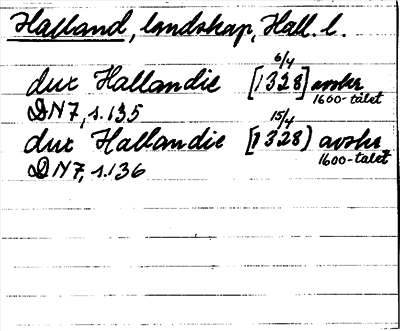 Halland, landskap, Hall. l.
dux Hallandie [1328] 6/4 avskr.
1600-talet
DN 7, s. 135
dux Hallandie [1328] 15/4 avskr
1600-talet
DN 7, s. 136